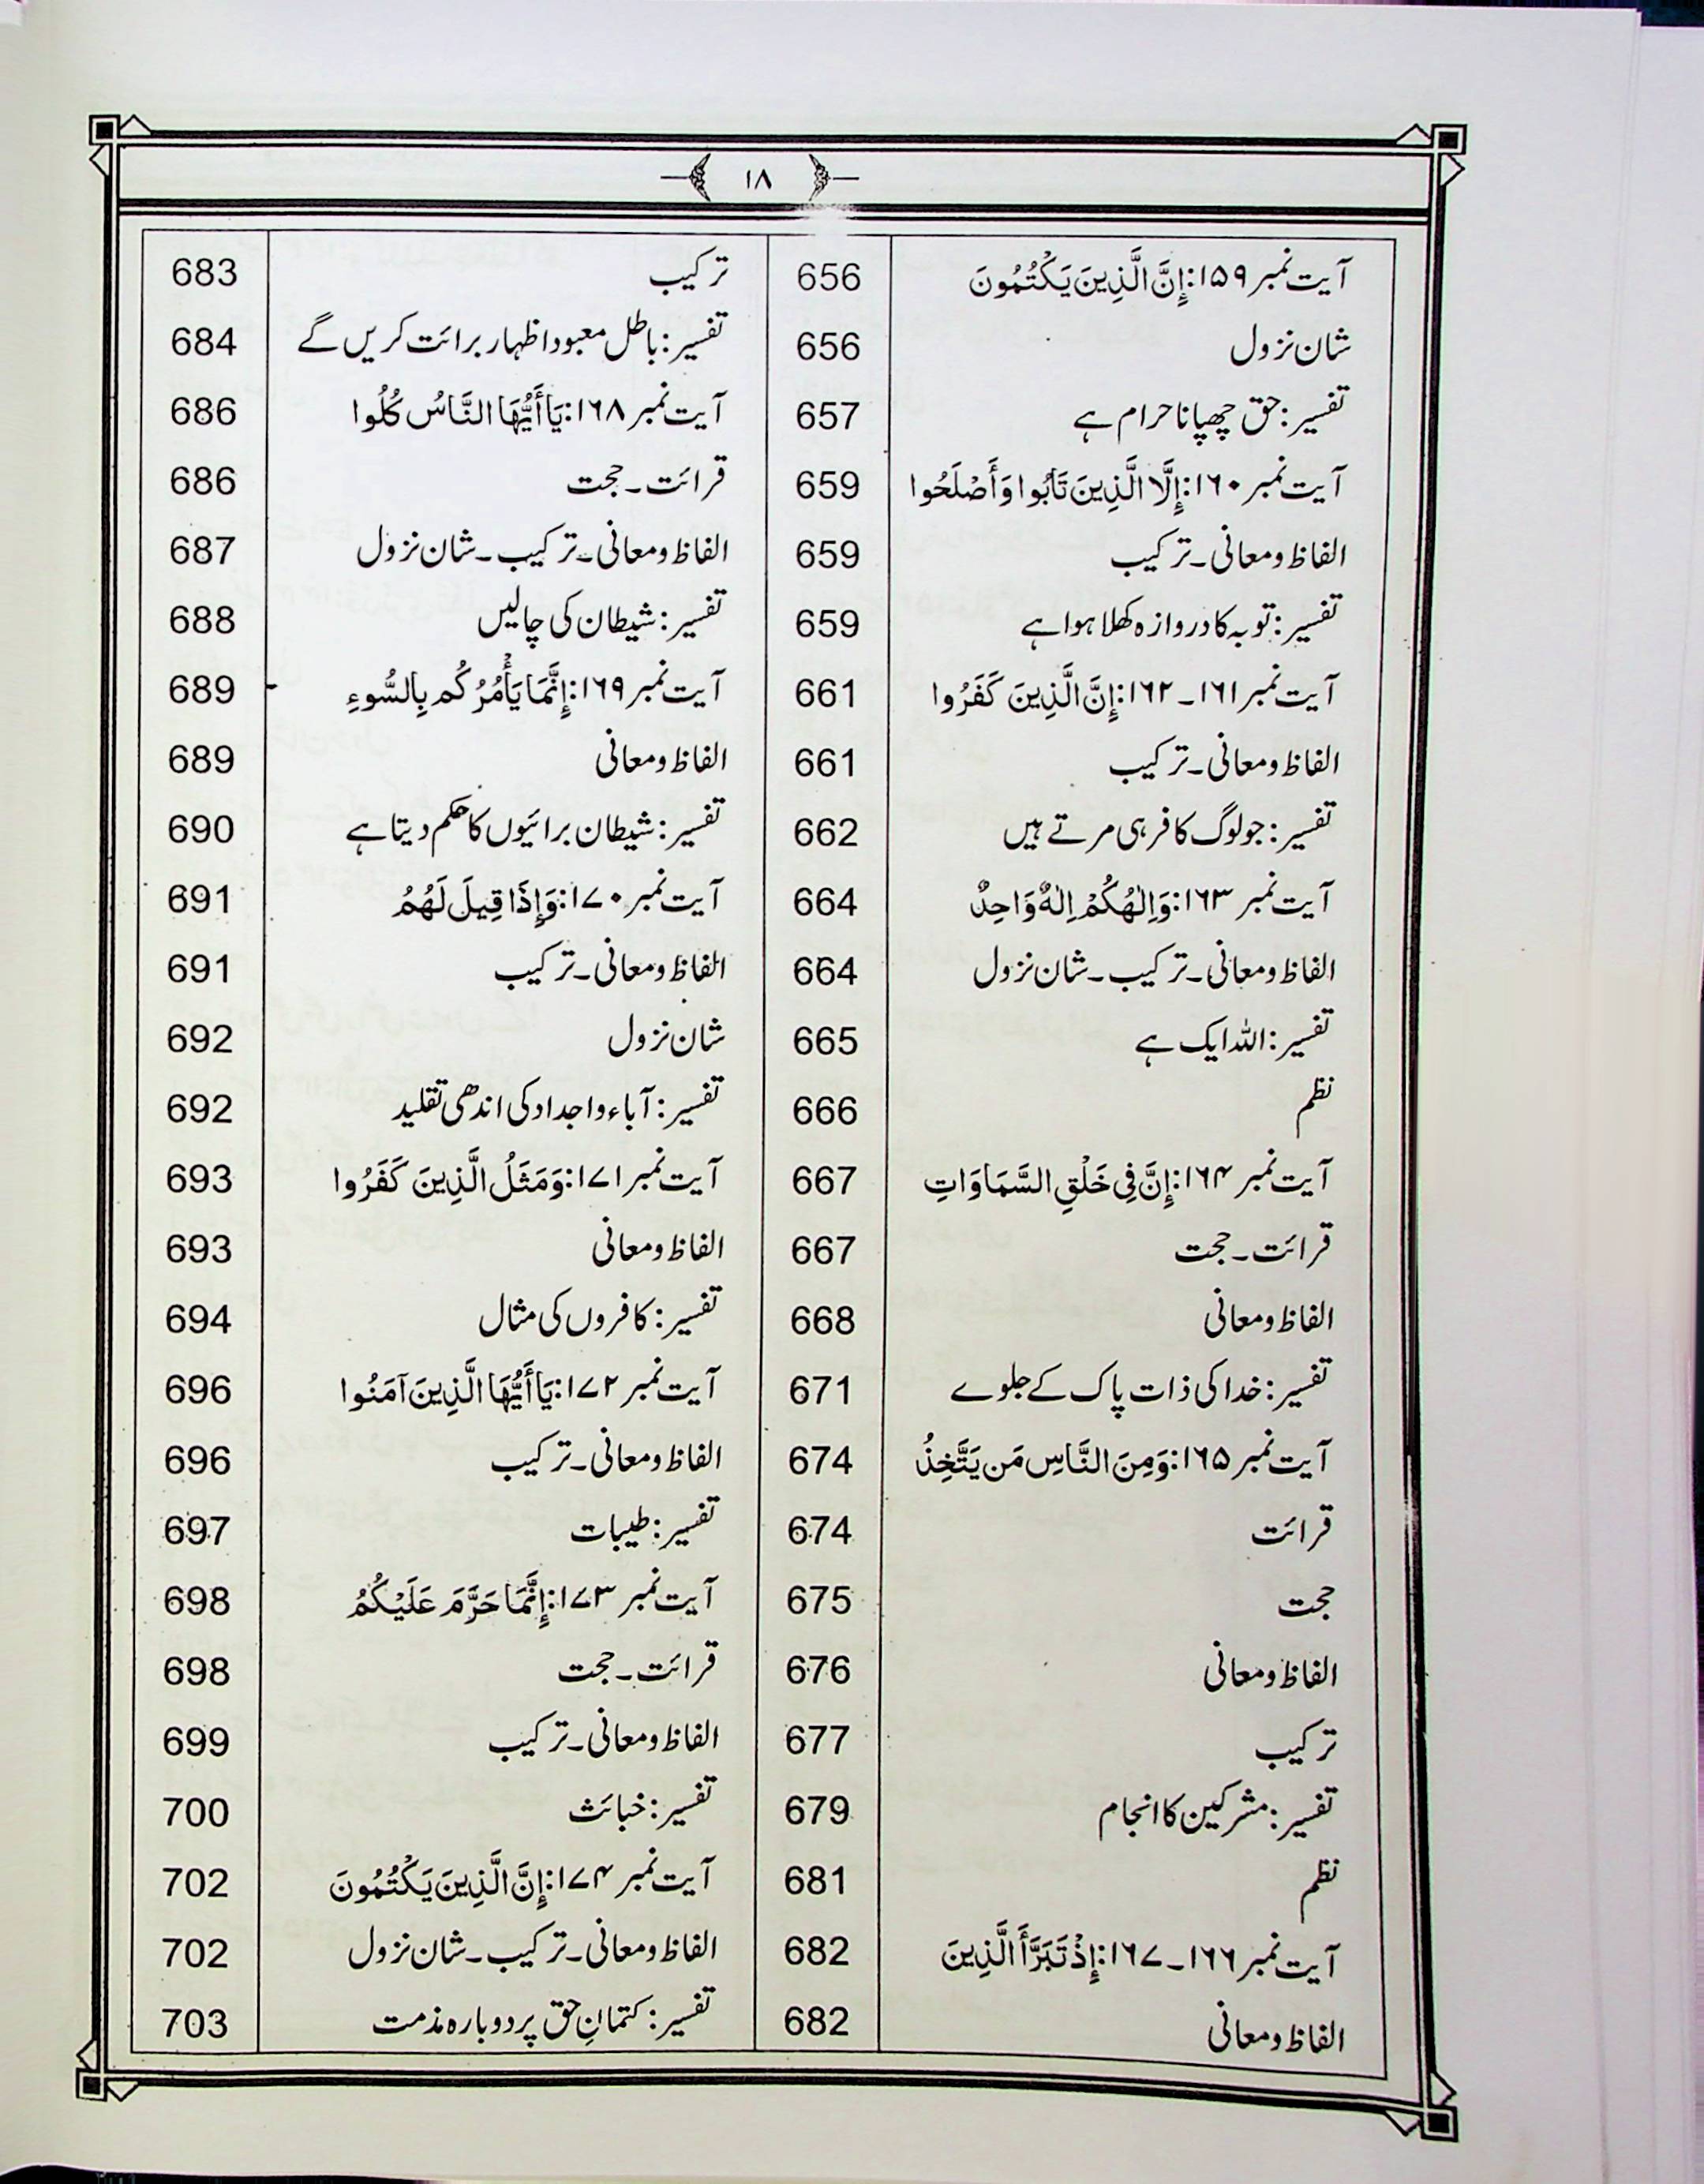 ۱۸
آیت نمبر ۱۵۹: إِنَّ الَّذِينَ يَكْتُمُونَ 656
شان نزول 656
تفسیر: حق چھپانا حرام ہے 657
آیت نمبر ۱۶۰: إِلَّا الَّذِينَ تَابُوا وَأَصْلَحُوا 659
الفاظ و معانی۔ ترکیب 659
تفسیر: توبہ کا دروازہ کھلا ہوا ہے 659
آیت نمبر ۱۶۱۔۱۶۲: إِنَّ الَّذِينَ كَفَرُوا 661
الفاظ و معانی۔ ترکیب 661
تفسیر: جو لوگ کافر ہی مرتے ہیں 662
آیت نمبر ۱۶۳: وَاِلٰهُكُمْ اِلٰهٌ وَّاحِدٌ 664
الفاظ و معانی۔ ترکیب۔ شان نزول 664
تفسیر: اللہ ایک ہے 665
نظم 666
آیت نمبر ۱۶۴: إِنَّ فِي خَلْقِ السَّمَاوَاتِ 667
قرائت۔ حجت 667
الفاظ و معانی 668
تفسیر: خدا کی ذات پاک کے جلوے 671
آیت نمبر ۱۶۵: وَمِنَ النَّاسِ مَن يَتَّخِذُ 674
قرائت 674
حجت 675
الفاظ و معانی 676
ترکیب 677
تفسیر: مشرکین کا انجام 679
نظم 681
آیت نمبر ۱۶۶۔۱۶۷: إِذْ تَبَرَّأَ الَّذِينَ 682
الفاظ و معانی 682
ترکیب 683
تفسیر: باطل معبود اظہار برائت کریں گے 684
آیت نمبر ۱۶۸: يَا أَيُّهَا النَّاسُ كُلُوا 686
قرائت۔ حجت 686
الفاظ و معانی۔ ترکیب۔ شان نزول 687
تفسیر: شیطان کی چالیں 688
آیت نمبر ۱۶۹: إِنَّمَا يَأْمُرُكُم بِالسُّوءِ 689
الفاظ و معانی 689
تفسیر: شیطان برائیوں کا حکم دیتا ہے 690
آیت نمبر ۱۷۰: وَإِذَا قِيلَ لَهُمُ 691
الفاظ و معانی۔ ترکیب 691
شان نزول 692
تفسیر: آباء و اجداد کی اندھی تقلید 692
آیت نمبر ۱۷۱: وَمَثَلُ الَّذِينَ كَفَرُوا 693
الفاظ و معانی 693
تفسیر: کافروں کی مثال 694
آیت نمبر ۱۷۲: يَا أَيُّهَا الَّذِينَ آمَنُوا 696
الفاظ و معانی۔ ترکیب 696
تفسیر: طیبات 697
آیت نمبر ۱۷۳: إِنَّمَا حَرَّمَ عَلَيْكُمُ 698
قرائت۔ حجت 698
الفاظ و معانی۔ ترکیب 699
تفسیر: خبائث 700
آیت نمبر ۱۷۴: إِنَّ الَّذِينَ يَكْتُمُونَ 702
الفاظ و معانی۔ ترکیب۔ شان نزول 702
تفسیر: کتمانِ حق پر دوبارہ مذمت 703